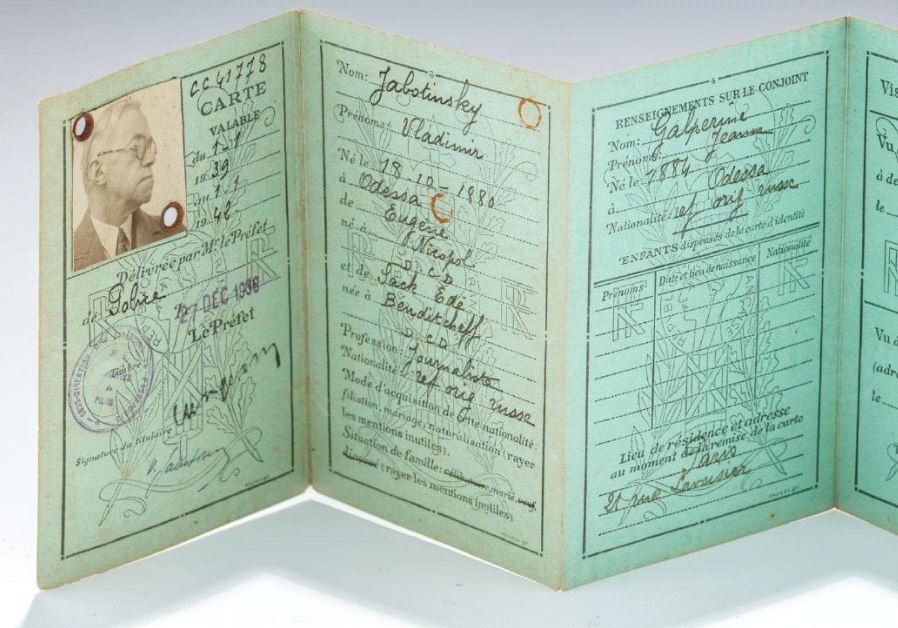 CC 41778
CARTE
VALABLE
du 1-1
1939
au 1.1
1942
Délivrée par Mr le Préfet
de Police
27 DEC 1938
Le Préfet
Timbre
Signature du titulaire
3
Nom: Jabotinsky
Prénoms: Vladimir
Né le 18-10-1880
à Odessa
de Eugène
né à Nicopol
D C D
et de Sack Ede
née à Benditcheff
D C D
Profession: Journaliste
Nationalité: ref orig russe
Mode d'acquisition de cette nationalité:
filiation, mariage, naturalisation (rayer
les mentions inutiles).
Situation de famille: célibataire, marié, veuf,
divorcé (rayer les mentions inutiles)
4
RENSEIGNEMENTS SUR LE CONJOINT
Nom: Galperine
Prénoms: Jeanne
Né le 1884
à Odessa
Nationalité: ref orig russe
ENFANTS dispensés de la carte d'identité
Prénoms Date et lieu de naissance Nationalité
Lieu de résidence et adresse
au moment de la remise de la carte
Paris
21 rue Lavoisier
Vis
Vu
à de
le
Vu à
(adre
le